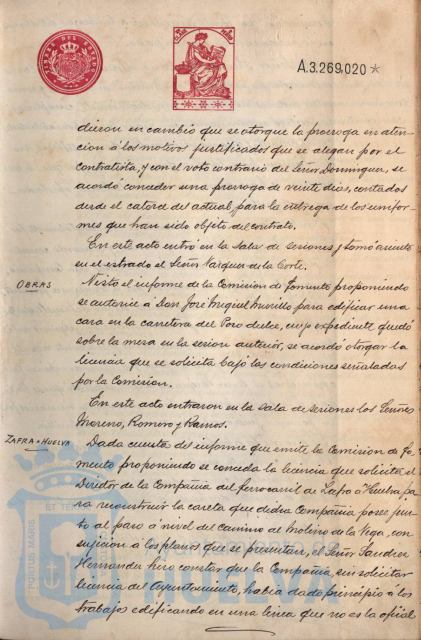 TIMBRE DEL ESTADO
A.3.269.020 *
dieron en cambio que se otorgue la prorroga en aten-
cion á los motivos justificados que se alegan por el
contratista, y con el voto contrario del Señor Dominguez, se
acordó conceder una prorroga de veinte dias, contados
desde el catorce del actual, para la entrega de los unifor-
mes que han sido objeto del contrato.
En este acto entró en la Sala de sesiones y tomó asiento
en el estrado el Señor Vazquez de la Corte.
OBRAS
Visto el informe de la Comision de Fomento proponiendo
se autorice á Don José Miguel Murillo para edificar una
casa en la carretera del Pozo dulce, cuyo expediente quedó
sobre la mesa en la sesion anterior, se acordó otorgar la
licencia que se solicita bajo las condiciones señaladas
por la Comision.
En este acto entraron en la Sala de sesiones los Señores
Moreno, Romero y Ramos.
ZAFRA á HUELVA
Dada cuenta del informe que emite la Comision de Fo-
mento proponiendo se conceda la licencia que solicita el
Director de la Compañia del ferrocarril de Zafra á Huelva pa-
ra reconstruir la caseta que dicha Compañia posee jun-
to al paso á nivel del camino del Molino de la Vega, con
sujecion á los planos que se presentan, el Señor Sanchez
Hernandez hizo constar que la Compañia, sin solicitar
licencia del Ayuntamiento, habia dado principio á los
trabajos edificando en una linea que no es la oficial
PORTUS MARIS
ET TER